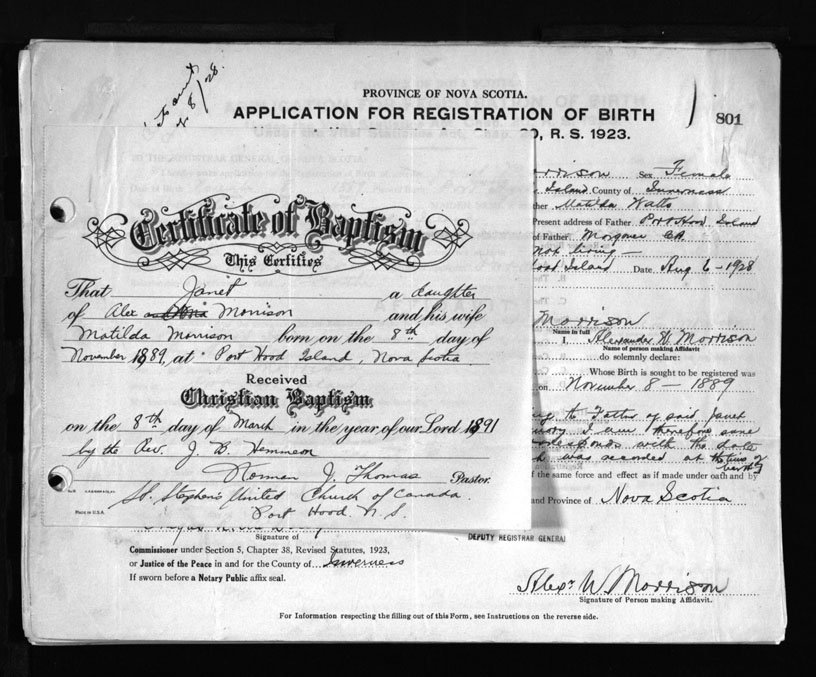 Janet
8/28
PROVINCE OF NOVA SCOTIA.
APPLICATION FOR REGISTRATION OF BIRTH
801
R. S. 1923.
Sex Female
Island County of Inverness
Matilda Watts
Present address of Father Port Hood Island
of Father
not living —
Hood Island Date Aug 6 - 1928
Morrison
Name in full
I, Alexander W. Morrison
Name of person making Affidavit
do solemnly declare:
Whose Birth is sought to be registered was
on November 8 — 1889
to Father of said Janet
I am therefore sure
corresponds with the date
was recorded at the time of
birth
f the same force and effect as if made under oath and by
and Province of Nova Scotia
DEPUTY REGISTRAR GENERAL
Certificate of Baptism
This Certifies
That Janet a daughter
of Alex Morrison and his wife
Matilda Morrison born on the 8th day of
November 1889, at Port Hood Island, Nova Scotia
Received
Christian Baptism
on the 8th day of March in the year of our Lord 1891
by the Rev. J. B. Hemmeon
Norman J. Thomas Pastor.
St. Stephen's United Church of Canada.
Port Hood N. S.
Signature of
Commissioner under Section 5, Chapter 38, Revised Statutes, 1923,
or Justice of the Peace in and for the County of Inverness
If sworn before a Notary Public affix seal.
Alexr W. Morrison
Signature of Person making Affidavit.
For Information respecting the filling out of this Form, see Instructions on the reverse side.